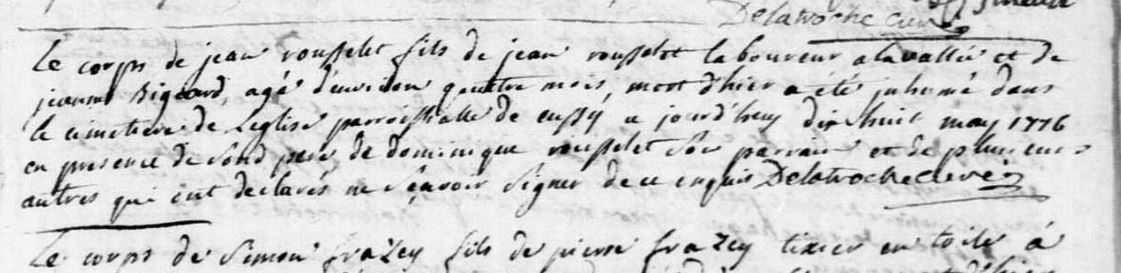 Delaroche curé
Le corps de jean rousselet fils de jean rousselet laboureur a la vallée et de
jeanne Bigeard, agé d'environ quattre mois, mort d'hier a été inhumé dans
le cimetiere de L'eglise parroissialle de cussÿ a jourd'huy dix huit may 1776
en presence de sond pere de dominique rousselet son parrain et de plusieurs
autres qui ont declarés ne sçavoir signer de ce enquis Delaroche curé
Le corps de Simon frazey fils de pierre frazey tixier en toile à